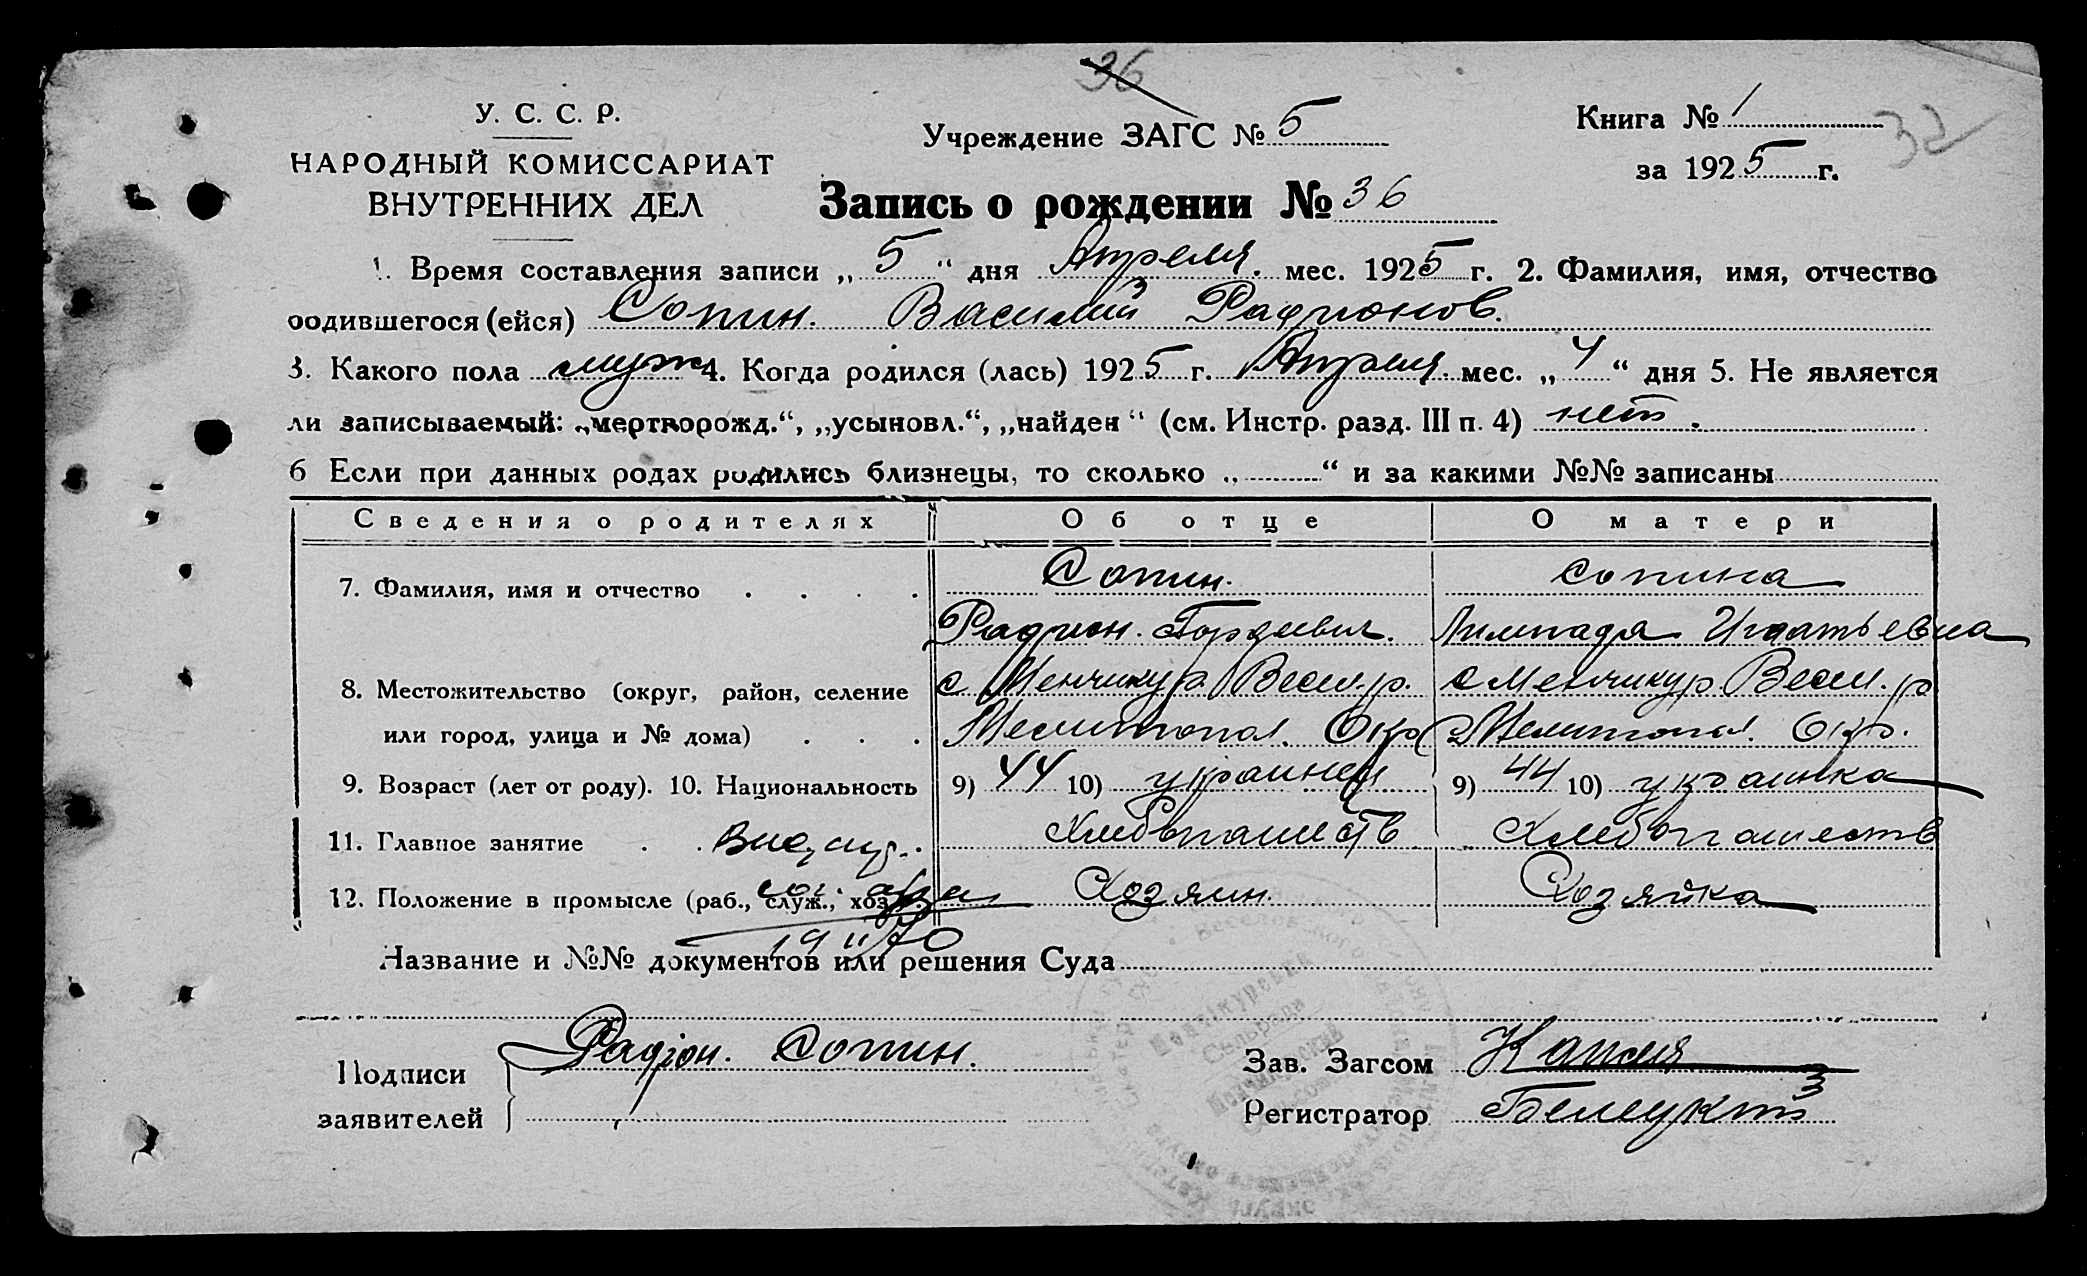 36
У. С. С. Р.
Учреждение ЗАГС № 5
Книга № 1
32
НАРОДНЫЙ КОМИССАРИАТ
за 1925 г.
ВНУТРЕННИХ ДЕЛ
Запись о рождении № 36
1. Время составления записи „5“ дня Апреля. мес. 1925 г. 2. Фамилия, имя, отчество
родившегося (ейся) Сопин. Василий Радионов.
3. Какого пола муж 4. Когда родился (лась) 1925 г. Апреля. мес. „4“ дня 5. Не является
ли записываемый: „мертворожд.“, „усыновл.“, „найден“ (см. Инстр. разд. III п. 4) нет.
6 Если при данных родах родились близнецы, то сколько „ “ и за какими №№ записаны
Сведения о родителях Об отце О матери
7. Фамилия, имя и отчество Сопин. Сопина
Радион. Гордеевич. Лимпада Игнатьевна
8. Местожительство (округ, район, селение с Менчикур Весел. р. с Менчикур Весел. р
или город, улица и № дома) Мелитопол. Окр Мелитопол. Окр.
9. Возраст (лет от роду). 10. Национальность 9) 44 10) украинец 9) 44 10) украинка
11. Главное занятие Хлебопашеств Хлебопашеств
12. Положение в промысле (раб., служ., хоз.) Хозяин. Хозяйка
1970
Название и №№ документов или решения Суда
Подписи Радіон. Сопин. Зав. Загсом Капля
заявителей Регистратор Белецкий